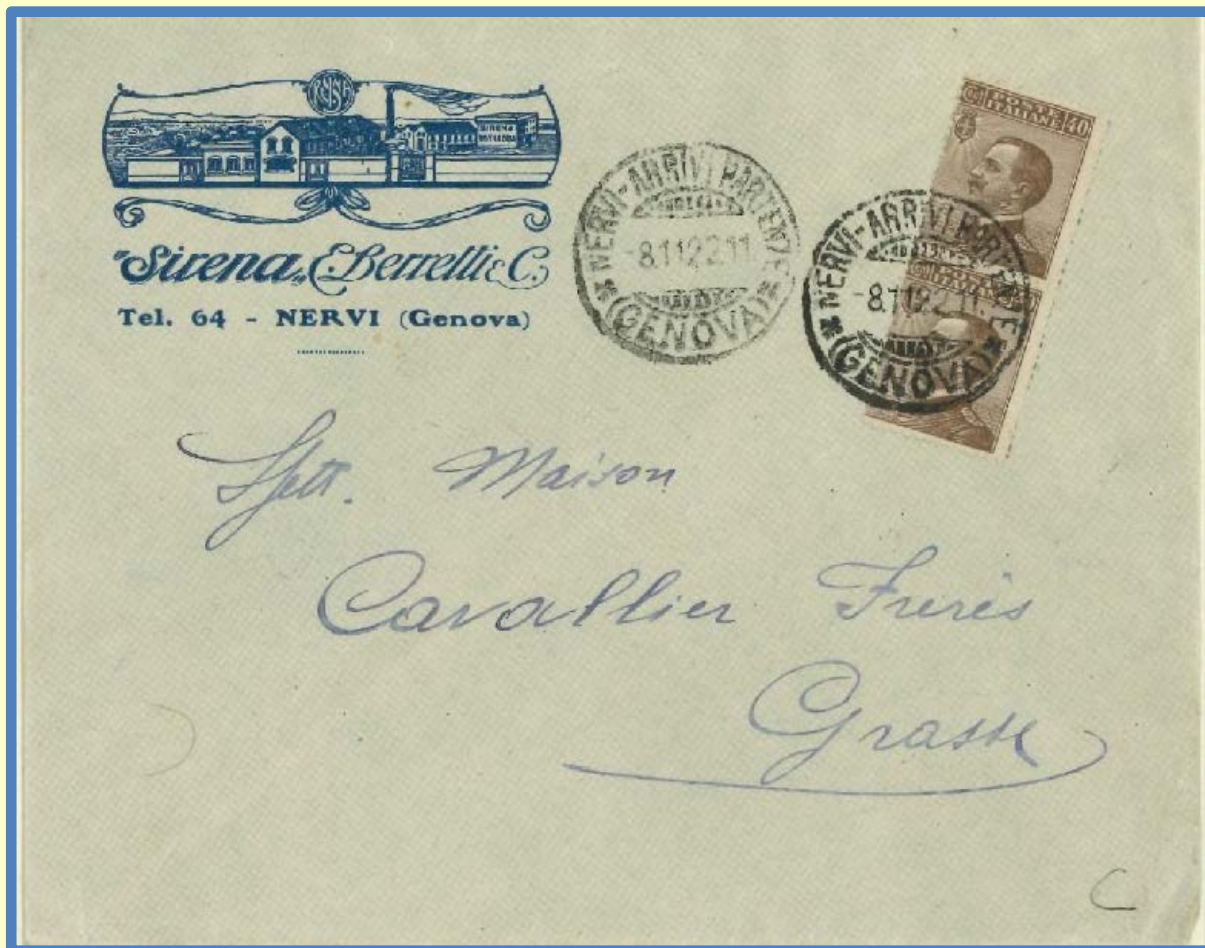 "Sirena" E. Berretti & C.
Tel. 64 - NERVI (Genova)
NERVI-ARRIVI PARTENZE
-8.11.22.11
(GENOVA)
POSTE ITALIANE 40
NERVI-ARRIVI PARTENZE
-8.11.22.11
(GENOVA)
Spett. Maison
Cavallier Frerès
Grasse
C